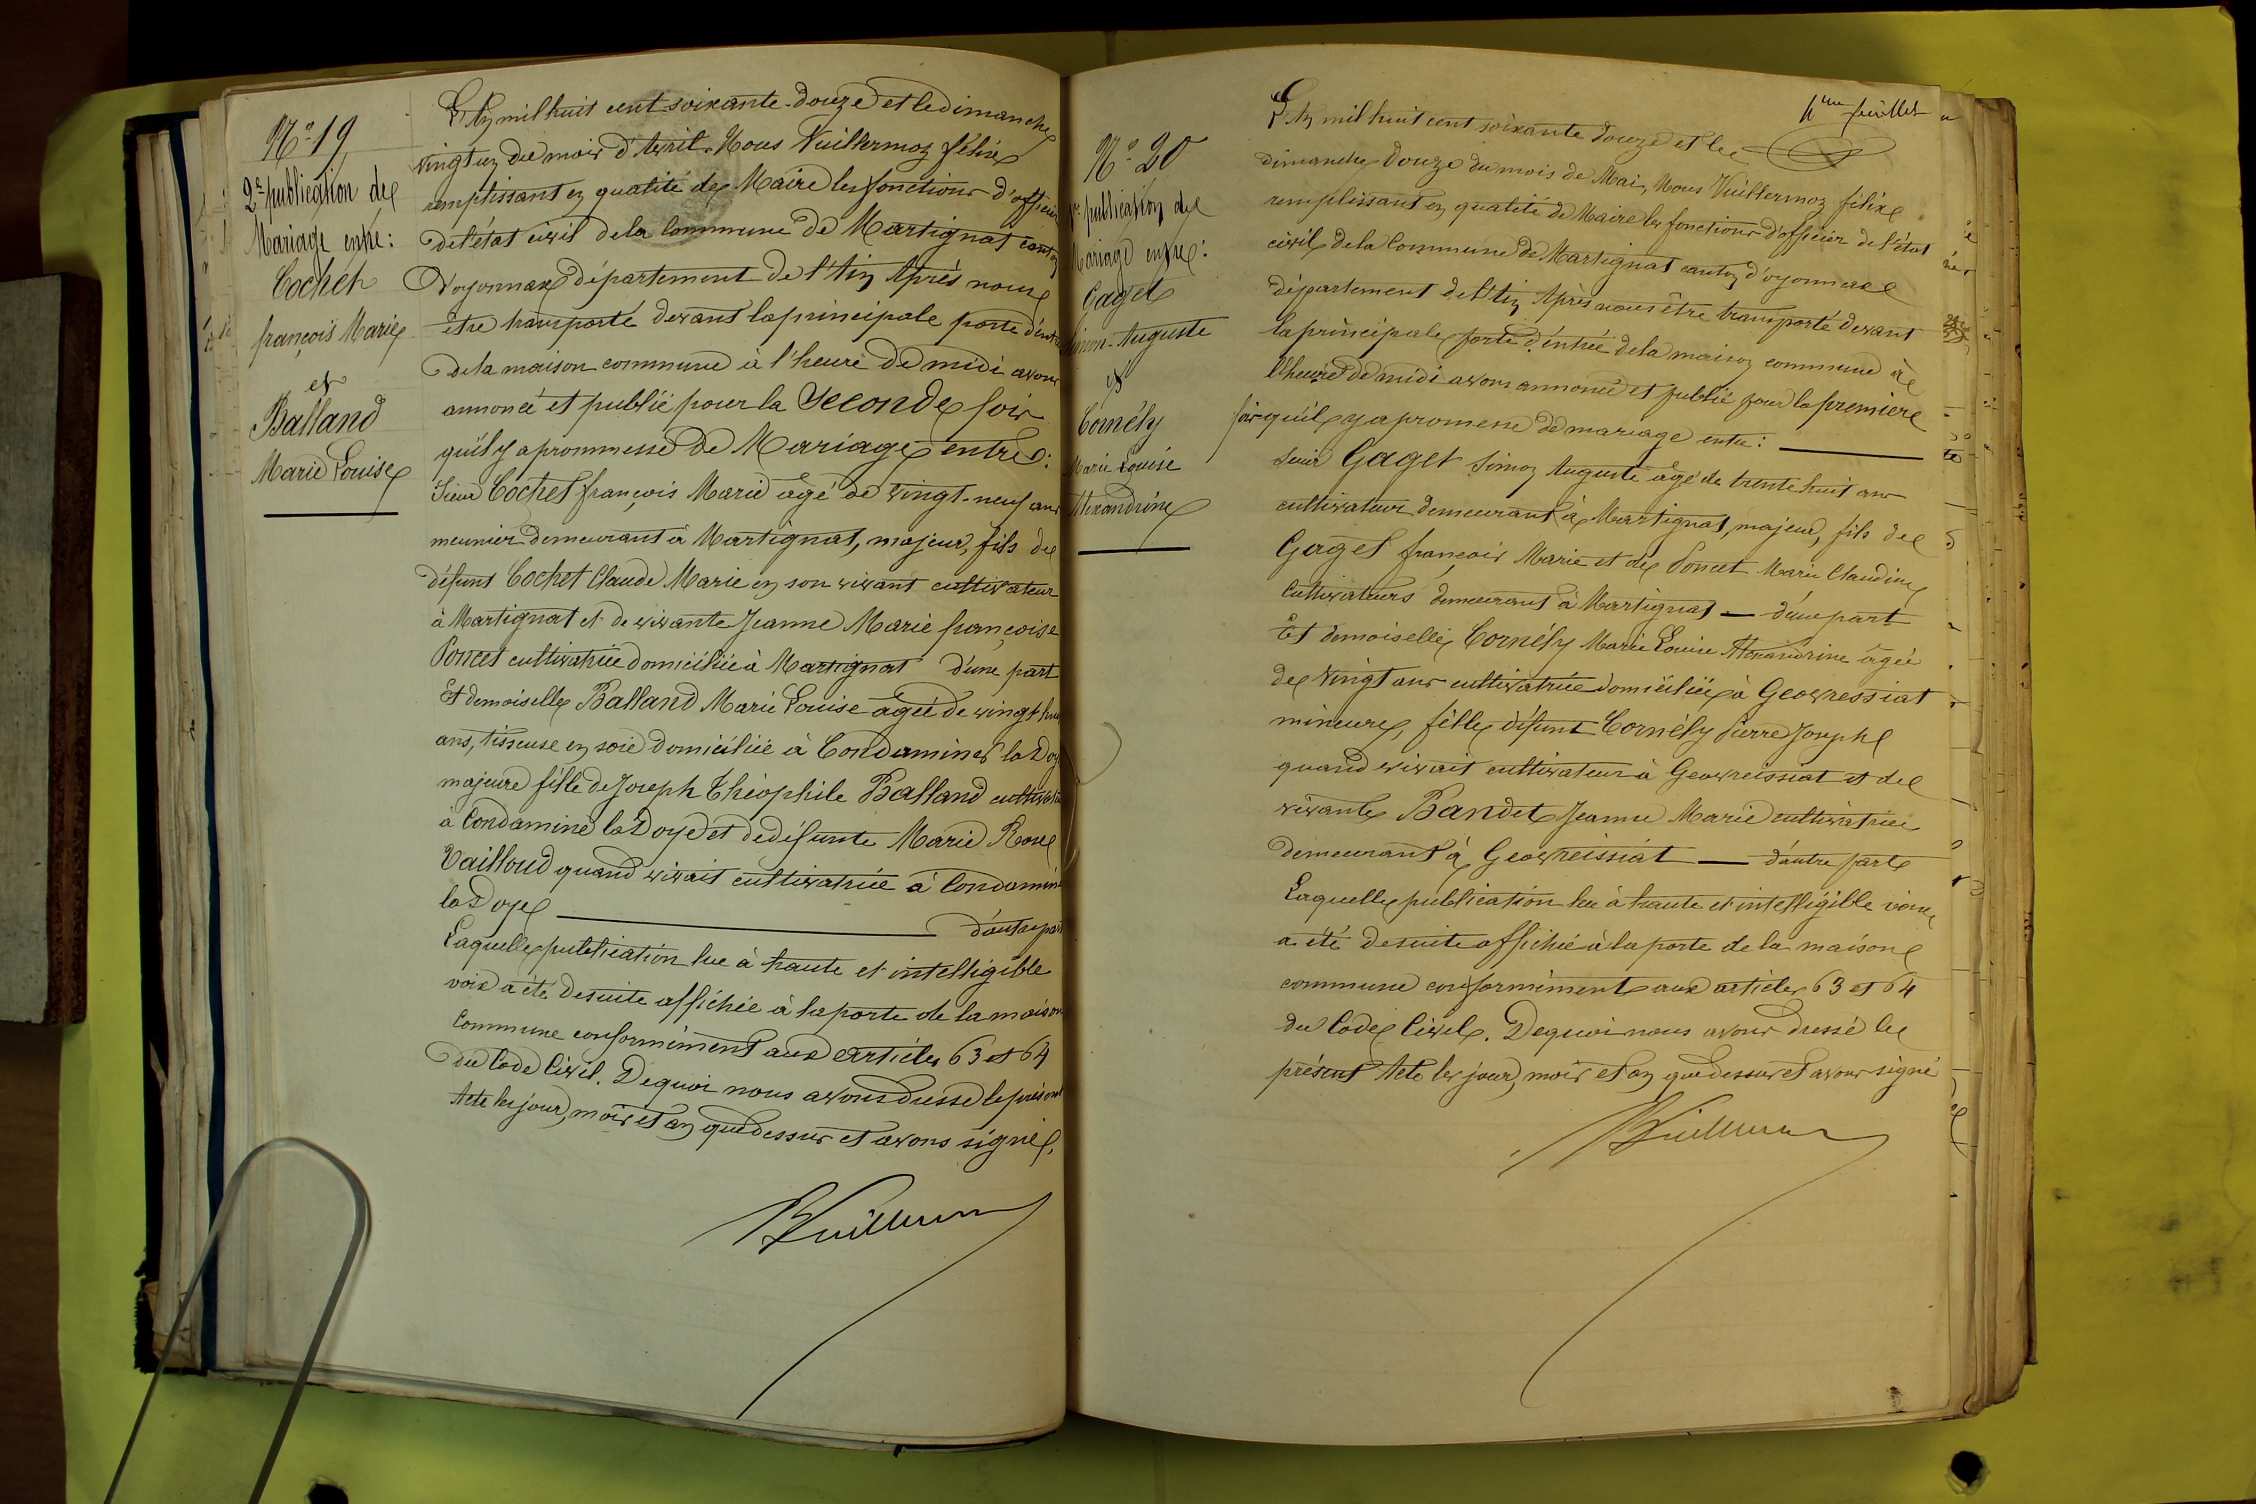 N° 19
2e publication de
Mariage entre :
Cochet
françois Marie
et
Balland
Marie Louise
L'An mil huit cent soixante-douze et le dimanche
vingt un du mois d'Avril. Nous Vuillermoz félix
remplissant en qualité de Maire les fonctions d'officier
de l'état civil de la Commune de Martignat canton
D'oyonnax département de l'Ain Après nous
être transporté devant la principale porte d'entrée
de la maison commune à l'heure de midi avons
annoncé et publié pour la Seconde fois
qu'il y a prommesse de Mariage entre :
Sieur Cochet françois Marie âgé de vingt-neuf ans
meunier demeurant à Martignat, majeur, fils de
défunt Cochet Claude Marie en son vivant cultivateur
à Martignat et de vivante Jeanne Marie françoise
Poncet cultivatrice domiciliée à Martignat d'une part
Et demoiselle Balland Marie Louise âgée de vingt huit
ans, tisseuse en soie domiciliée à Condamines la Doye
majeure fille de Joseph Théophile Balland cultivateur
à Condamine la Doye et de défunte Marie Rose
Vailloud quand vivait cultivatrice à Condamine
la Doye d'autre part
Laquelle publication lue à haute et intelligible
voix a été de suite affichée à la porte de la maison
Commune conformément aux articles 63 et 64
du Code Civil. De quoi nous avons dressé le présent
Acte les jour, mois et an que dessus et avons signé.
Vuillermoz
4me feuillet
N° 20
1re publication de
Mariage entre :
Gaget
Simon-Auguste
et
Cornély
Marie Louise
Alexandrine
L'An mil huit cent soixante douze et le
dimanche douze du mois de Mai, Nous Vuillermoz félix
remplissant en qualité de Maire les fonctions d'officier de l'état
civil de la Commune de Martignat canton d'oyonnax
département de l'Ain Après nous être transporté devant
la principale porte d'entrée de la maison commune à
l'heure de midi avons annoncé et publié pour la premiere
fois qu'il y a promesse de mariage entre :
Sieur Gaget Simon Auguste âgé de trente huit ans
cultivateur demeurant à Martignat, majeur, fils de
Gaget françois Marie et de Poncet Marie Claudine
Cultivateurs demeurant à Martignat — d'une part
Et demoiselle Cornély Marie Louise Alexandrine âgée
de vingt ans cultivatrice domiciliée à Geovressiat
mineure, fille défunt Cornély Pierre Joseph
quand vivait cultivateur à Geovreissiat et de
vivante Bandet Jeanne Marie cultivatrice
demeurant à Geovreissiat — d'autre part
Laquelle publication lue à haute et intelligible voix
a été de suite affichée à la porte de la maison
commune conformément aux articles 63 et 64
du Code Civil. De quoi nous avons dressé le
présent Acte les jour, mois et an que dessus et avons signé
Vuillermoz